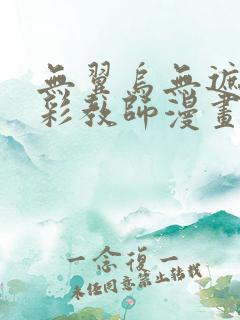 無翼鳥無遮
彩教師漫畫
一念復一
未经同意禁止转载